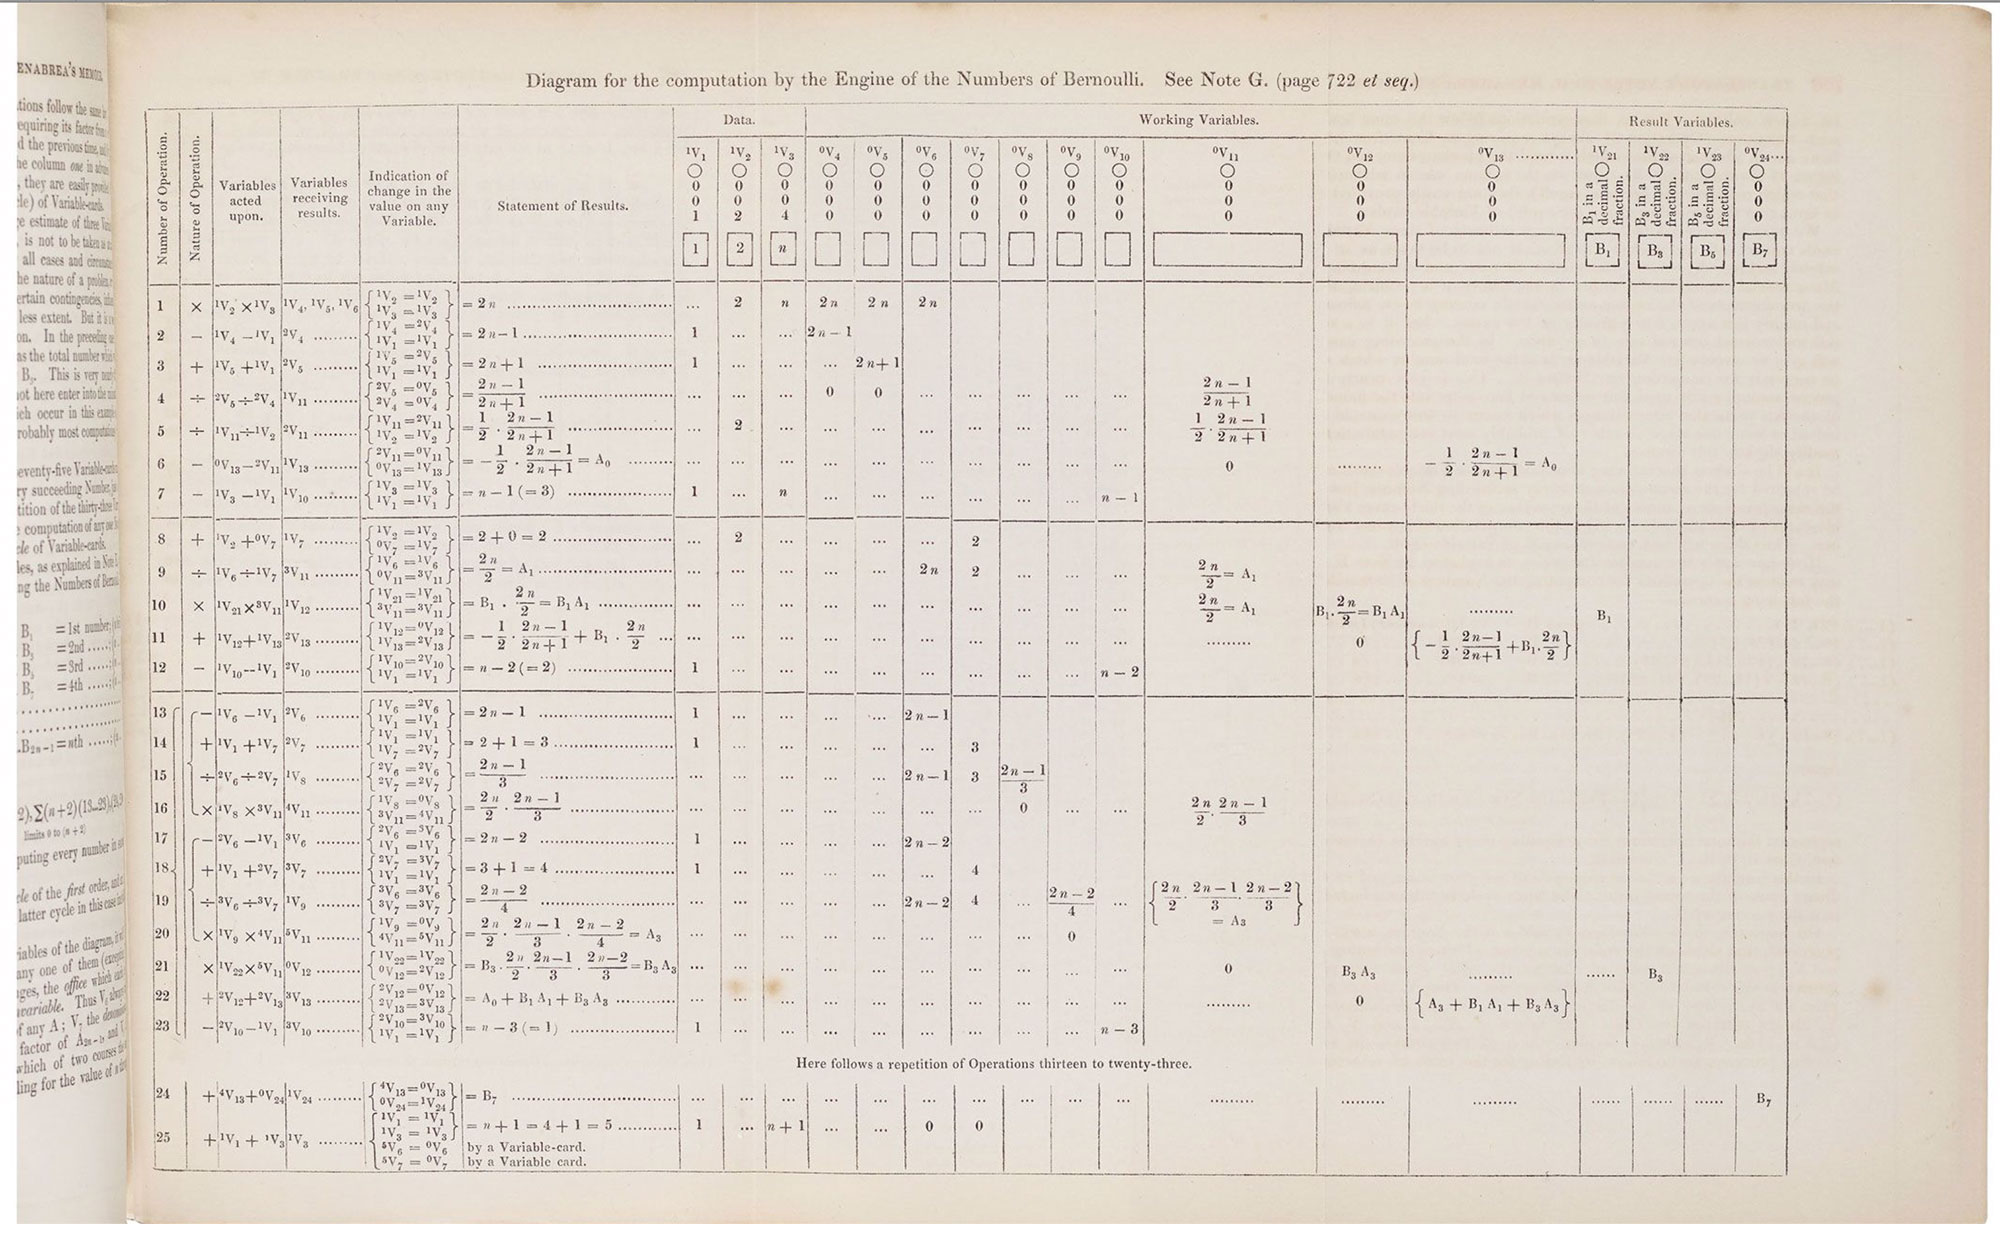 ENABREA'S MEMOIR.
tions follow the same
equiring its factor from
d the previous time,
he column one in
, they are easily
of Variable-cards.
e estimate of three
, is not to be taken as
all cases and
he nature of a
ertain contingencies,
less extent. But it is
on. In the preceding
as the total number
B₇. This is very
not here enter into the
ich occur in this
robably most
eventy-five
ry succeeding Number,
tition of the thirty-three
computation of any
of Variable-cards.
les, as explained in Note
ng the Numbers of
B₁ =1st number;
B₃ =2nd ......;
B₅ =3rd ......;
B₇ =4th ......;
B₂ₙ₋₁=nth ......;
Σ(n+2)(13...23)
limits 0 to (n+2)
puting every number in
of the first order,
latter cycle in this case
iables of the diagram,
any one of them
ges, the office which
variable. Thus V
f any A; V₇ the
factor of A₂ₙ₋₁, and
which of two courses
ling for the value of n
Diagram for the computation by the Engine of the Numbers of Bernoulli. See Note G. (page 722 et seq.)
Data. Working Variables. Result Variables.
Number of Operation.
Nature of Operation.
Variables acted upon.
Variables receiving results.
Indication of change in the value on any Variable.
Statement of Results.
¹V₁ ○ 0 0 1 [1]
¹V₂ ○ 0 0 2 [2]
¹V₃ ○ 0 0 4 [n]
⁰V₄ ○ 0 0 0
⁰V₅ ○ 0 0 0
⁰V₆ ○ 0 0 0
⁰V₇ ○ 0 0 0
⁰V₈ ○ 0 0 0
⁰V₉ ○ 0 0 0
⁰V₁₀ ○ 0 0 0
⁰V₁₁ ○ 0 0 0
⁰V₁₂ ○ 0 0 0
⁰V₁₃ ............ ○ 0 0 0
¹V₂₁ ○ B₁ in a decimal fraction. [B₁]
¹V₂₂ ○ B₃ in a decimal fraction. [B₃]
¹V₂₃ ○ B₅ in a decimal fraction. [B₅]
⁰V₂₄... ○ 0 0 0 [B₇]
1 × ¹V₂ ×¹V₃ ¹V₄, ¹V₅, ¹V₆ {¹V₂ =¹V₂ ¹V₃ =¹V₃} = 2n ...... ... 2 n 2n 2n 2n
2 − ¹V₄ −¹V₁ ²V₄ ...... {¹V₄ =²V₄ ¹V₁ =¹V₁} = 2n−1 ...... 1 ... ... 2n−1
3 + ¹V₅ +¹V₁ ²V₅ ...... {¹V₅ =²V₅ ¹V₁ =¹V₁} = 2n+1 ...... 1 ... ... ... 2n+1
4 ÷ ²V₅ ÷²V₄ ¹V₁₁ ...... {²V₅ =⁰V₅ ²V₄ =⁰V₄} = (2n−1)/(2n+1) ...... ... ... ... 0 0 ... ... ... ... ... (2n−1)/(2n+1)
5 ÷ ¹V₁₁÷¹V₂ ²V₁₁ ...... {¹V₁₁=²V₁₁ ¹V₂ =¹V₂} = 1/2 . (2n−1)/(2n+1) ...... ... 2 ... ... ... ... ... ... ... ... 1/2 . (2n−1)/(2n+1)
6 − ⁰V₁₃−²V₁₁ ¹V₁₃ ...... {²V₁₁=⁰V₁₁ ⁰V₁₃=¹V₁₃} = −1/2 . (2n−1)/(2n+1) = A₀ ...... ... ... ... ... ... ... ... ... ... ... 0 ......... −1/2 . (2n−1)/(2n+1) = A₀
7 − ¹V₃ −¹V₁ ¹V₁₀ ...... {¹V₃ =¹V₃ ¹V₁ =¹V₁} = n−1(=3) ...... 1 ... n ... ... ... ... ... ... n−1
8 + ¹V₂ +⁰V₇ ¹V₇ ...... {¹V₂ =¹V₂ ⁰V₇ =¹V₇} = 2+0=2 ...... ... 2 ... ... ... ... 2
9 ÷ ¹V₆ ÷¹V₇ ³V₁₁ ...... {¹V₆ =¹V₆ ⁰V₁₁=³V₁₁} = 2n/2 = A₁ ...... ... ... ... ... ... 2n 2 ... ... ... 2n/2 = A₁
10 × ¹V₂₁×³V₁₁ ¹V₁₂ ...... {¹V₂₁=¹V₂₁ ³V₁₁=³V₁₁} = B₁ . 2n/2 = B₁A₁ ...... ... ... ... ... ... ... ... ... ... ... 2n/2 = A₁ B₁. 2n/2 = B₁A₁ ......... B₁
11 + ¹V₁₂+¹V₁₃ ²V₁₃ ...... {¹V₁₂=⁰V₁₂ ¹V₁₃=²V₁₃} = −1/2 . (2n−1)/(2n+1) + B₁ . 2n/2 ... ... ... ... ... ... ... ... ... ... ... ......... 0 {−1/2 . (2n−1)/(2n+1) + B₁. 2n/2}
12 − ¹V₁₀−¹V₁ ²V₁₀ ...... {¹V₁₀=²V₁₀ ¹V₁ =¹V₁} = n−2(=2) ...... 1 ... ... ... ... ... ... ... ... n−2
13 − ¹V₆ −¹V₁ ²V₆ ...... {¹V₆ =²V₆ ¹V₁ =¹V₁} = 2n−1 ...... 1 ... ... ... ... 2n−1
14 + ¹V₁ +¹V₇ ²V₇ ...... {¹V₁ =¹V₁ ¹V₇ =²V₇} = 2+1=3 ...... 1 ... ... ... ... ... 3
15 ÷ ²V₆ ÷²V₇ ¹V₈ ...... {²V₆ =²V₆ ²V₇ =²V₇} = (2n−1)/3 ...... ... ... ... ... ... 2n−1 3 (2n−1)/3
16 × ¹V₈ ×³V₁₁ ⁴V₁₁ ...... {¹V₈ =⁰V₈ ³V₁₁=⁴V₁₁} = 2n/2 . (2n−1)/3 ...... ... ... ... ... ... ... ... 0 ... ... 2n/2 . (2n−1)/3
17 − ²V₆ −¹V₁ ³V₆ ...... {²V₆ =³V₆ ¹V₁ =¹V₁} = 2n−2 ...... 1 ... ... ... ... 2n−2
18 + ¹V₁ +²V₇ ³V₇ ...... {²V₇ =³V₇ ¹V₁ =¹V₁} = 3+1=4 ...... 1 ... ... ... ... ... 4
19 ÷ ³V₆ ÷³V₇ ¹V₉ ...... {³V₆ =³V₆ ³V₇ =³V₇} = (2n−2)/4 ...... ... ... ... ... ... 2n−2 4 ... (2n−2)/4 ... {2n/2 . (2n−1)/3 . (2n−2)/3} = A₃
20 × ¹V₉ ×⁴V₁₁ ⁵V₁₁ ...... {¹V₉ =⁰V₉ ⁴V₁₁=⁵V₁₁} = 2n/2 . (2n−1)/3 . (2n−2)/4 = A₃ ... ... ... ... ... ... ... ... 0
21 × ¹V₂₂×⁵V₁₁ ⁰V₁₂ ...... {¹V₂₂=¹V₂₂ ⁰V₁₂=²V₁₂} = B₃ . 2n/2 . (2n−1)/3 . (2n−2)/3 = B₃A₃ ... ... ... ... ... ... ... ... ... ... 0 B₃A₃ ......... ...... B₃
22 + ²V₁₂+²V₁₃ ³V₁₃ ...... {²V₁₂=⁰V₁₂ ²V₁₃=³V₁₃} = A₀ + B₁A₁ + B₃A₃ ...... ... ... ... ... ... ... ... ... ... ... ......... 0 {A₃ + B₁A₁ + B₃A₃}
23 − ²V₁₀−¹V₁ ³V₁₀ ...... {²V₁₀=³V₁₀ ¹V₁ =¹V₁} = n−3(=1) ...... 1 ... ... ... ... ... ... ... ... n−3
Here follows a repetition of Operations thirteen to twenty-three.
24 + ⁴V₁₃+⁰V₂₄ ¹V₂₄ ...... {⁴V₁₃=⁰V₁₃ ⁰V₂₄=¹V₂₄} = B₇ ...... ... ... ... ... ... ... ... ... ... ... ......... ......... ......... ...... ...... ...... B₇
25 + ¹V₁ + ¹V₃ ¹V₃ ...... {¹V₁ = ¹V₁ ¹V₃ = ¹V₃ ⁵V₆ = ⁰V₆ ⁵V₇ = ⁰V₇} = n+1=4+1=5 ...... 1 ... n+1 ... ... 0 0
by a Variable-card.
by a Variable card.